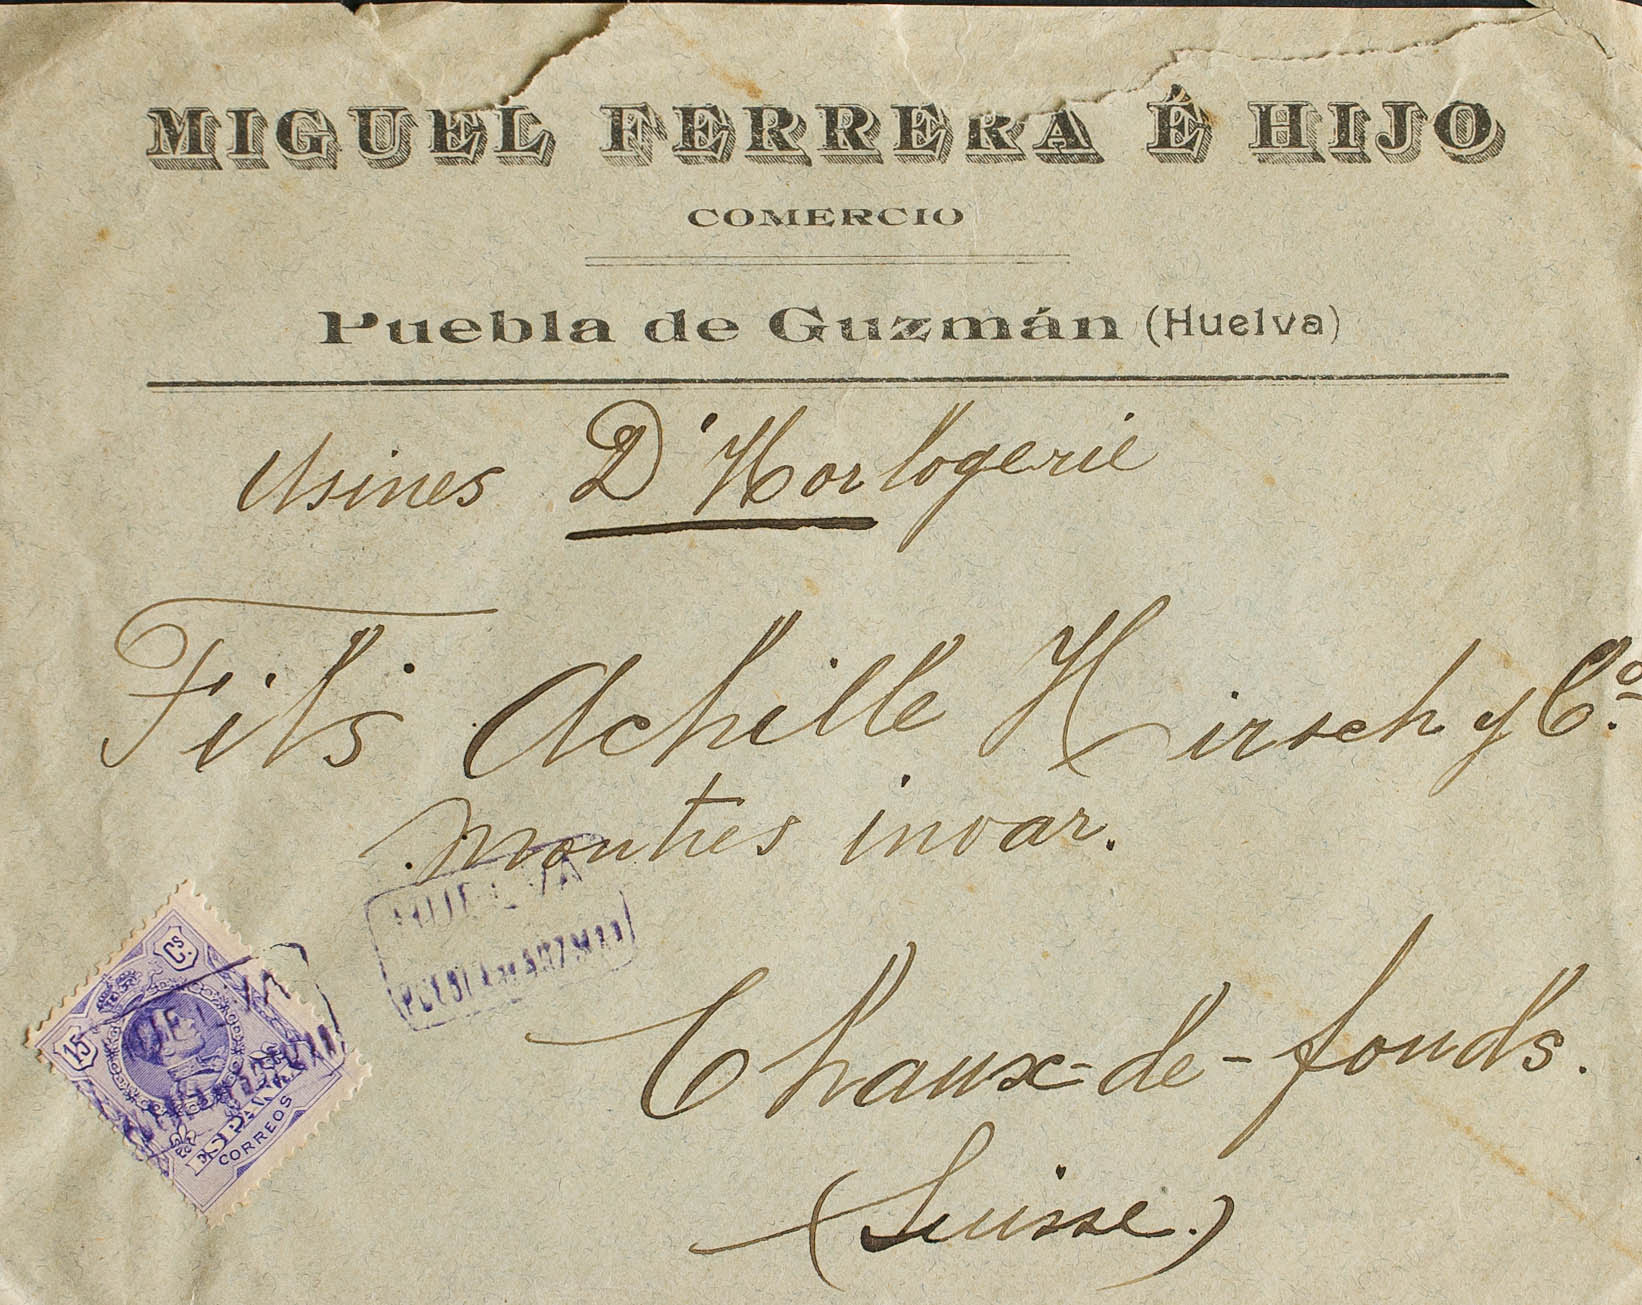 MIGUEL FERRERA É HIJO
COMERCIO
Puebla de Guzmán (Huelva)
Usines D'Horlogerie
Fils Achille Hirsch y Cº.
Montres invar.
HUELVA
PUEBLA DE GUZMAN
Chaux-de-fonds.
(Suisse.)
15
Cs.
ESPAÑA
CORREOS